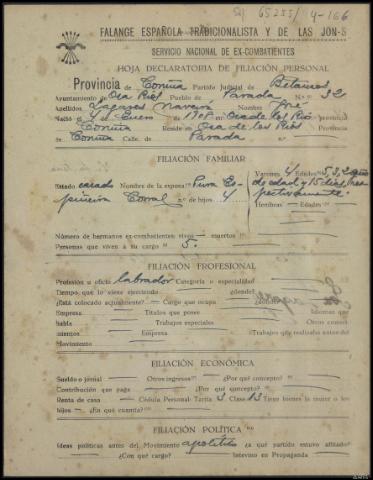 65255/4-166
FALANGE ESPAÑOLA TRADICIONALISTA Y DE LAS JON-S
SERVICIO NACIONAL DE EX-COMBATIENTES
HOJA DECLARATORIA DE FILIACIÓN PERSONAL
Provincia de Coruña Partido Judicial de Betanzos
Ayuntamiento de Oza Rios Pueblo de Parada N.º 32
Apellidos Nombre José
Nació el 4 de Enero de 1908 en Oza de los Rios Provincia
Coruña Reside en Oza de los Rios Provincia
de Coruña Calle de Parada
FILIACIÓN FAMILIAR
Varones 4 Edades 5, 3, 2 años
Estado casado Nombre de la esposa Pura Es- de edad y 15 dias, res
piñeira Corral n.º de hijos 4 pectivamente
Hembras Edades
Número de hermanos ex-combatientes: vivos muertos
Personas que viven a su cargo 5.
FILIACIÓN PROFESIONAL
Profesión u oficio labrador Categoria o especialidad
Tiempo que lo viene ejerciendo ¿dónde?
¿Está colocado actualmente? Cargo que ocupa
Empresa Títulos que posee Idiomas que
habla Trabajos especiales Otros conoci-
mientos Empresa Trabajos que realizaba antes del
Movimiento
FILIACIÓN ECONÓMICA
Sueldo o jornal Otros ingresos ¿Por qué concepto?
Contribución que paga ¿Por qué concepto?
Renta de casa Cédula Personal: Tarifa 3 Clase 13 Tiene bienes la mujer o los
hijos ¿En qué cuantía?
FILIACIÓN POLÍTICA
Ideas políticas antes del Movimiento apolitico ¿a qué partido estuvo afiliado?
¿Con qué cargo? Intervino en Propaganda